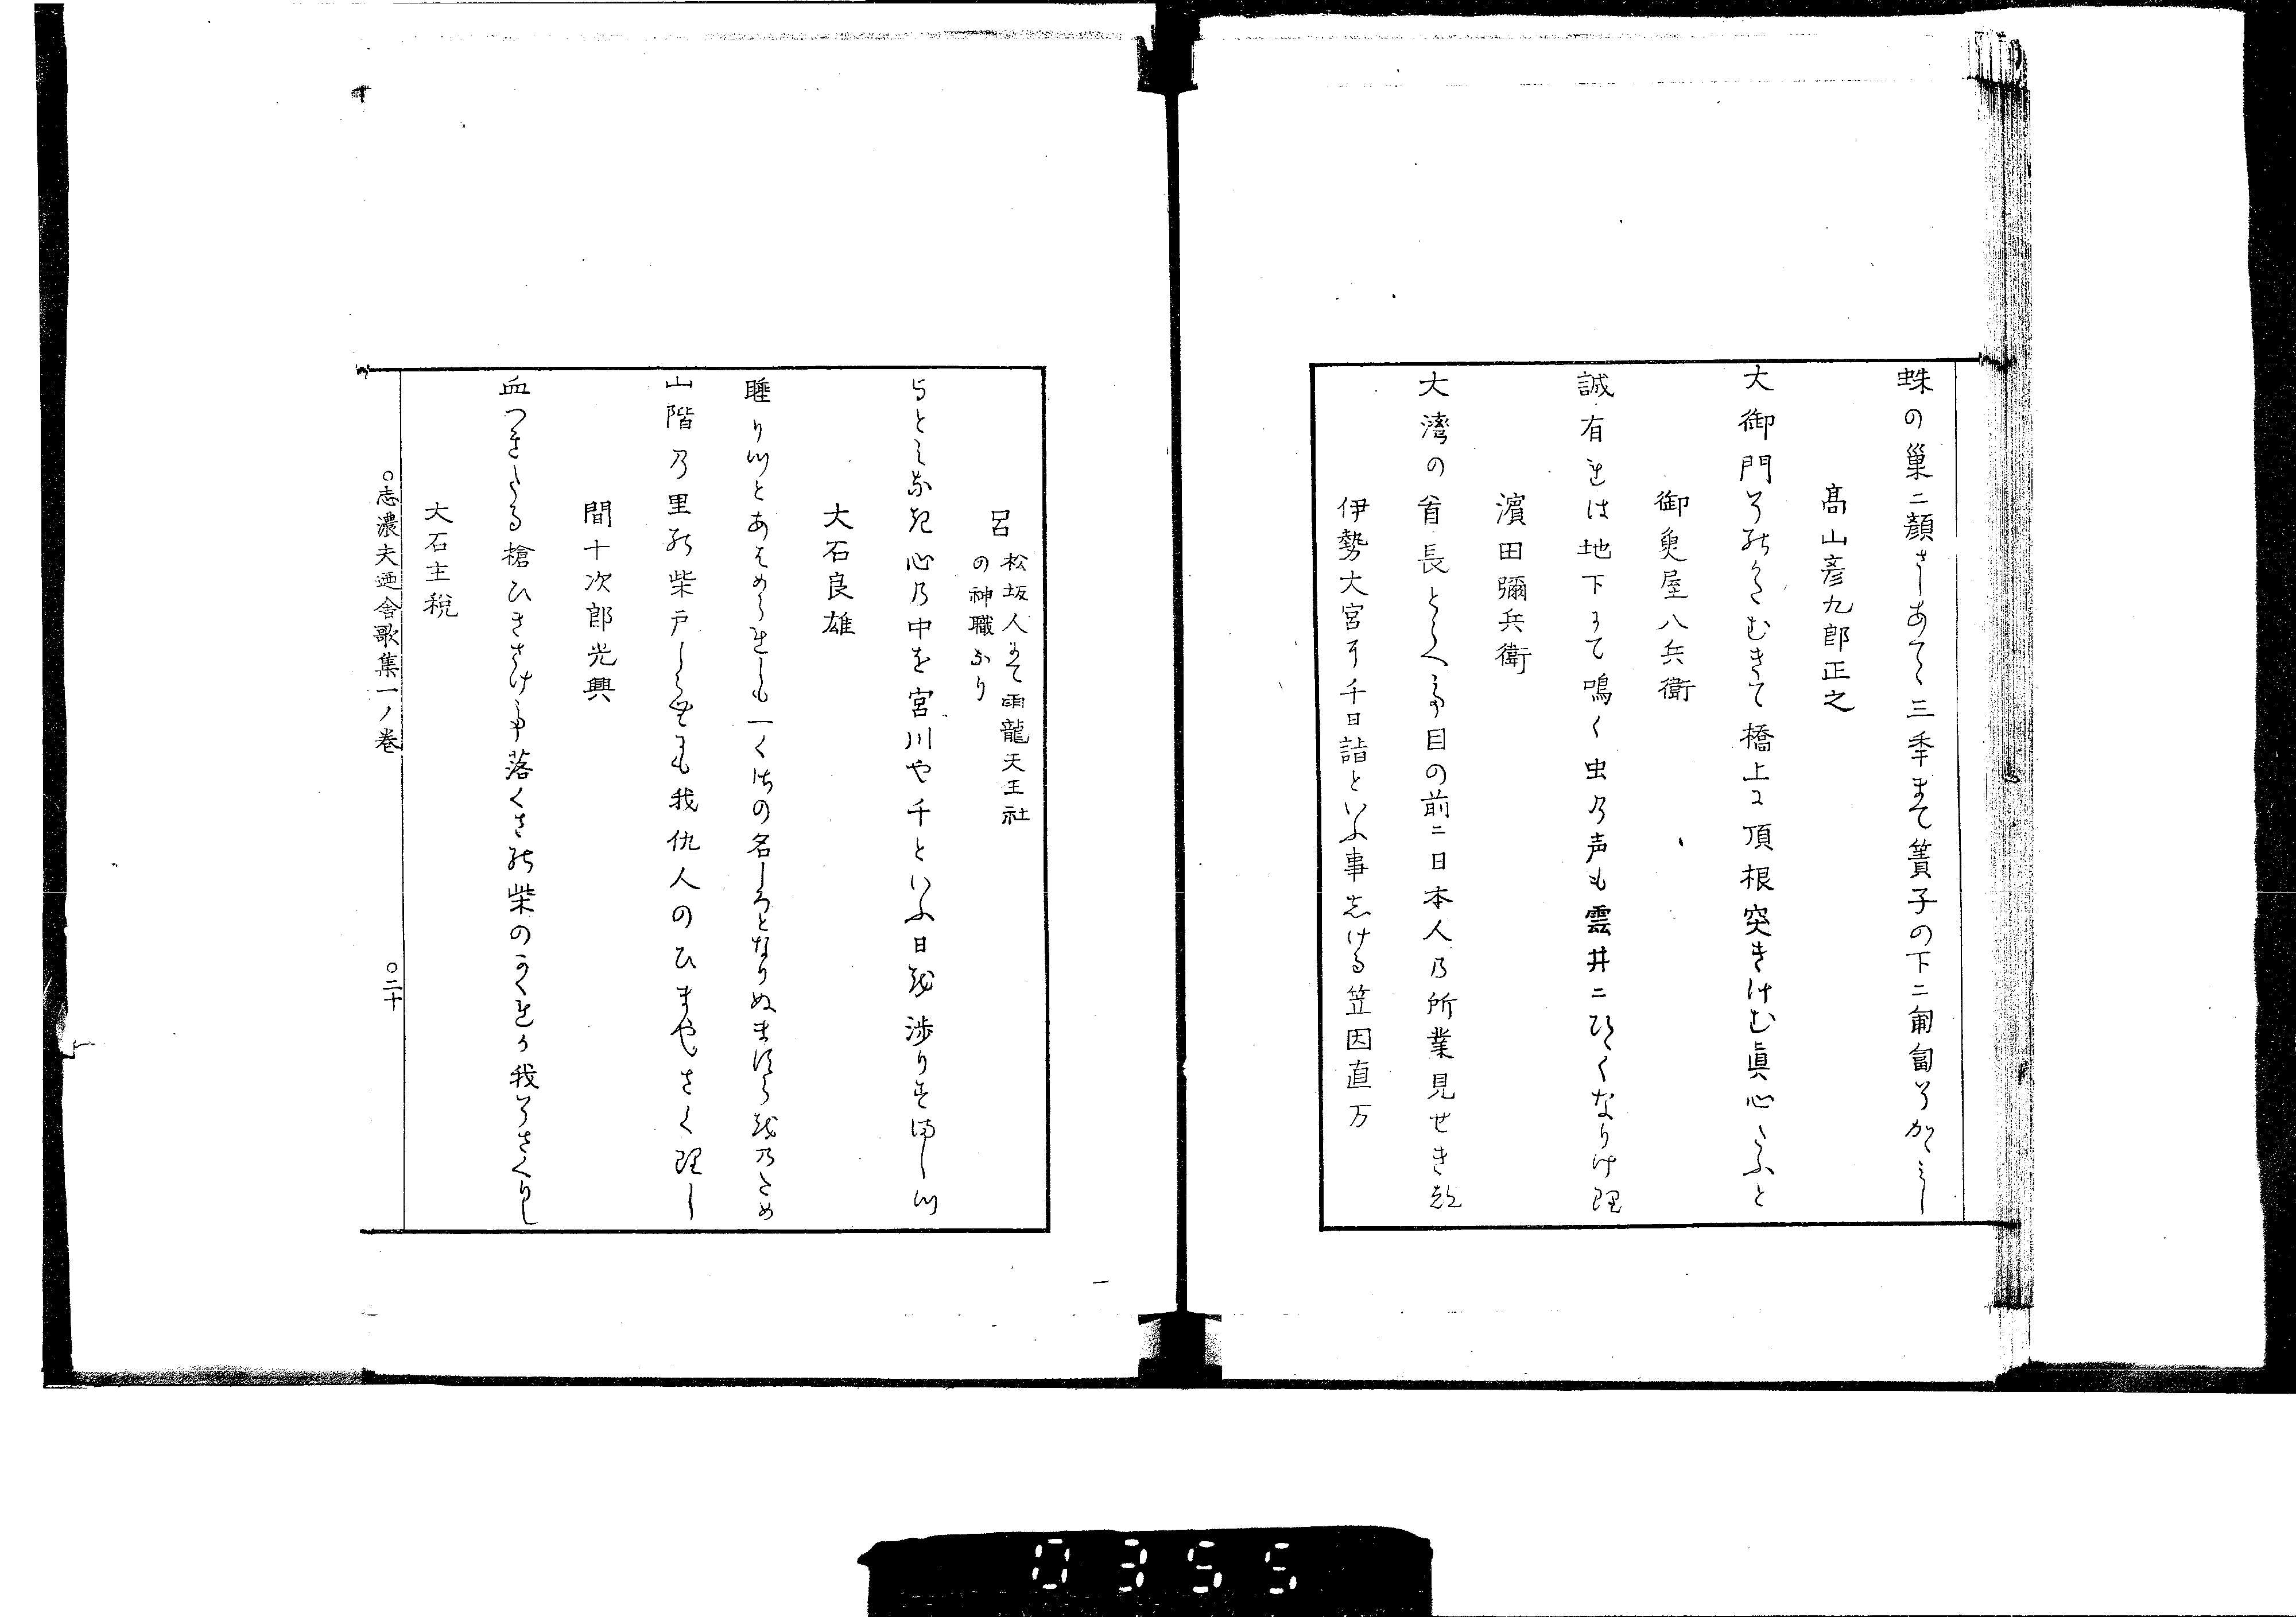 蛛の巣ニ顔さしあてゝ三季まて簀子の下ニ匍匐そかゝみし
髙山彦九郎正之
大御門そのかたむきて橋上に頂根突きけむ眞心たふと
御魚屋八兵衛
誠有れは地下にて鳴く虫乃声も雲井ニひゝくなりけり
濱田彌兵衛
大湾の首長とらへて目の前ニ日本人乃所業見せきし
伊勢大宮に千日詣といふ事志ける笠因直万
呂
松坂人にて雨龍天王社
の神職なり
うとみなき心乃中を宮川や千といふ日を渉りすましつ
大石良雄
睡りつとあそめられしも一くさの名しろとなりぬますらを乃ため
山階乃里の柴戸しらせしも我仇人のひまやさくりし
間十次郎光興
血つきたる槍ひきさけて落くさの柴のかくれか我そさくりし
大石主税
○志濃夫廼舎歌集一ノ巻
○二十
0355